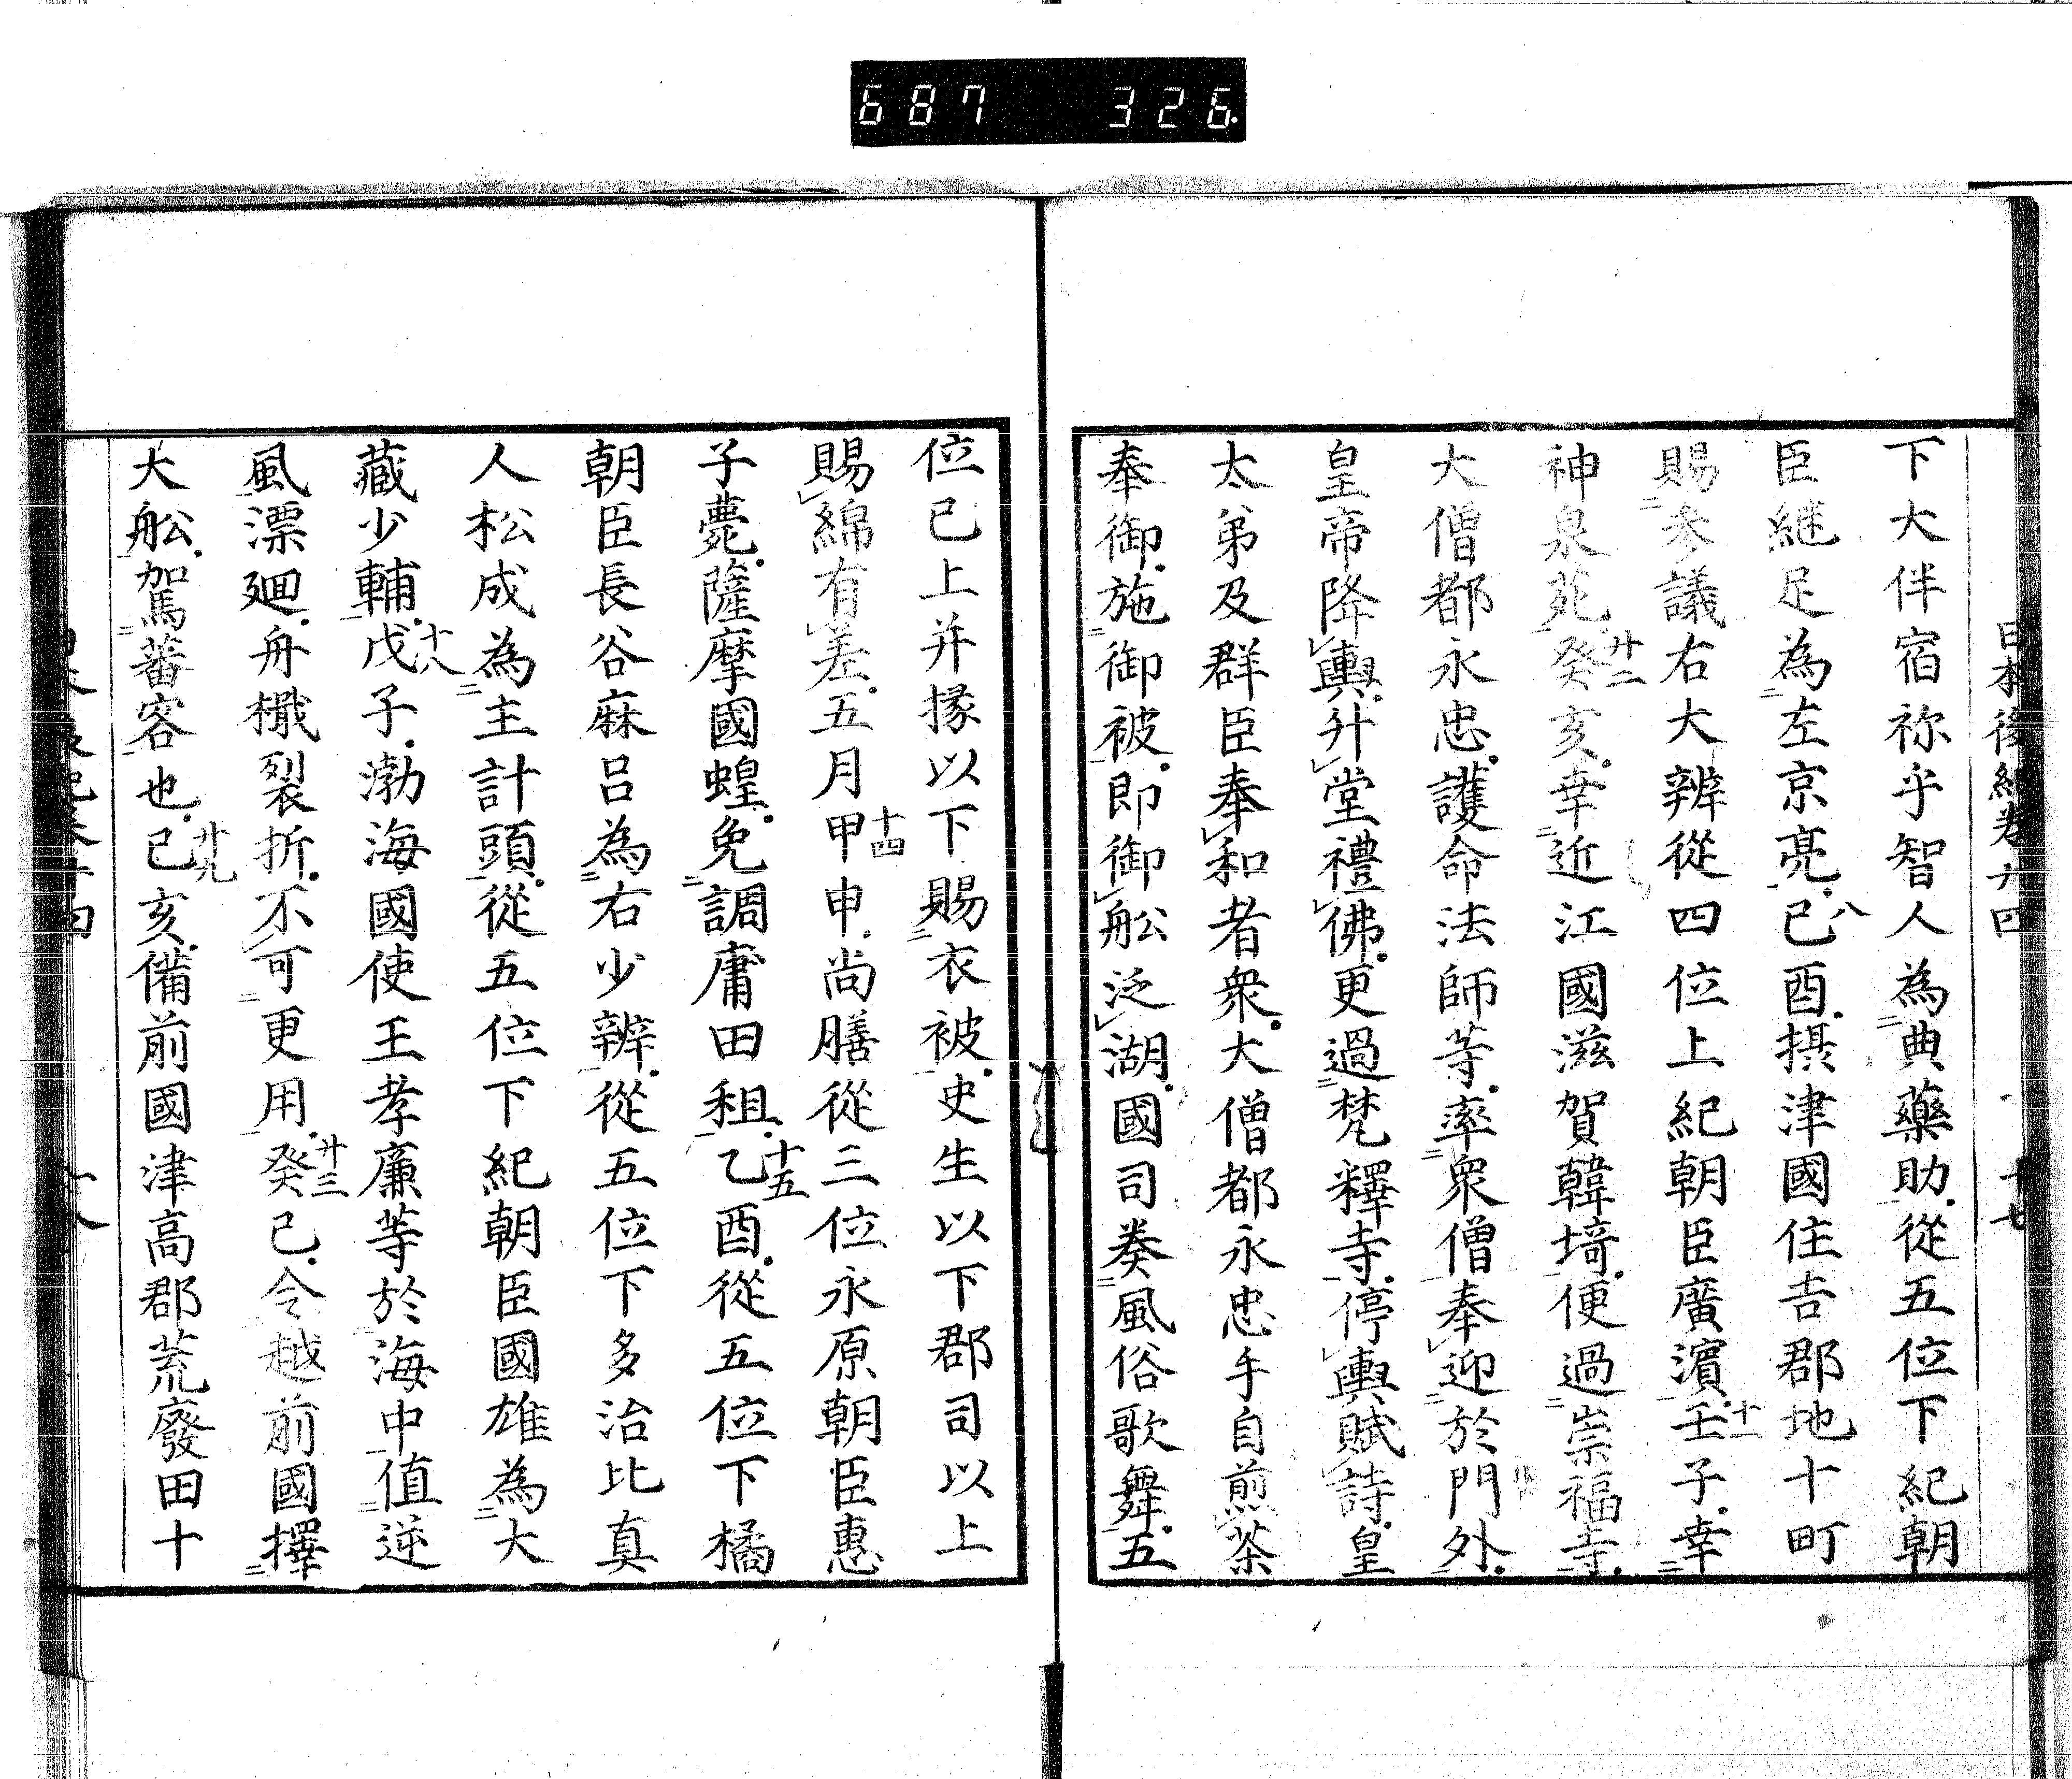 687 326
日本後紀卷廿四 十七
下大伴宿祢乎智人為典藥助從五位下紀朝
臣継足為左京亮八已酉摂津國住吉郡地十町
賜參議右大辨從四位上紀朝臣廣濱十一壬子幸
神泉苑廿二癸亥幸近江國滋賀韓埼便過崇福寺
大僧都永忠護命法師等率衆僧奉迎於門外
皇帝降輿升堂禮佛更過梵釋寺停輿賦詩皇
太弟及群臣奉和者衆大僧都永忠手自煎茶
奉御施御被即御舩泛湖國司奏風俗歌舞五
位已上并掾以下賜衣被史生以下郡司以上
賜綿有差五月十四甲申尚膳從三位永原朝臣惠
子薨薩摩國蝗免調庸田租十五乙酉從五位下橘
朝臣長谷麻呂為右少辨從五位下多治比真
人松成為主計頭從五位下紀朝臣國雄為大
藏少輔十八戊子渤海國使王孝廉等於海中值逆
風漂廻舟檝裂折不可更用廿三癸已令越前國擇
大舩駕蕃客也廿九已亥備前國津高郡荒廢田十